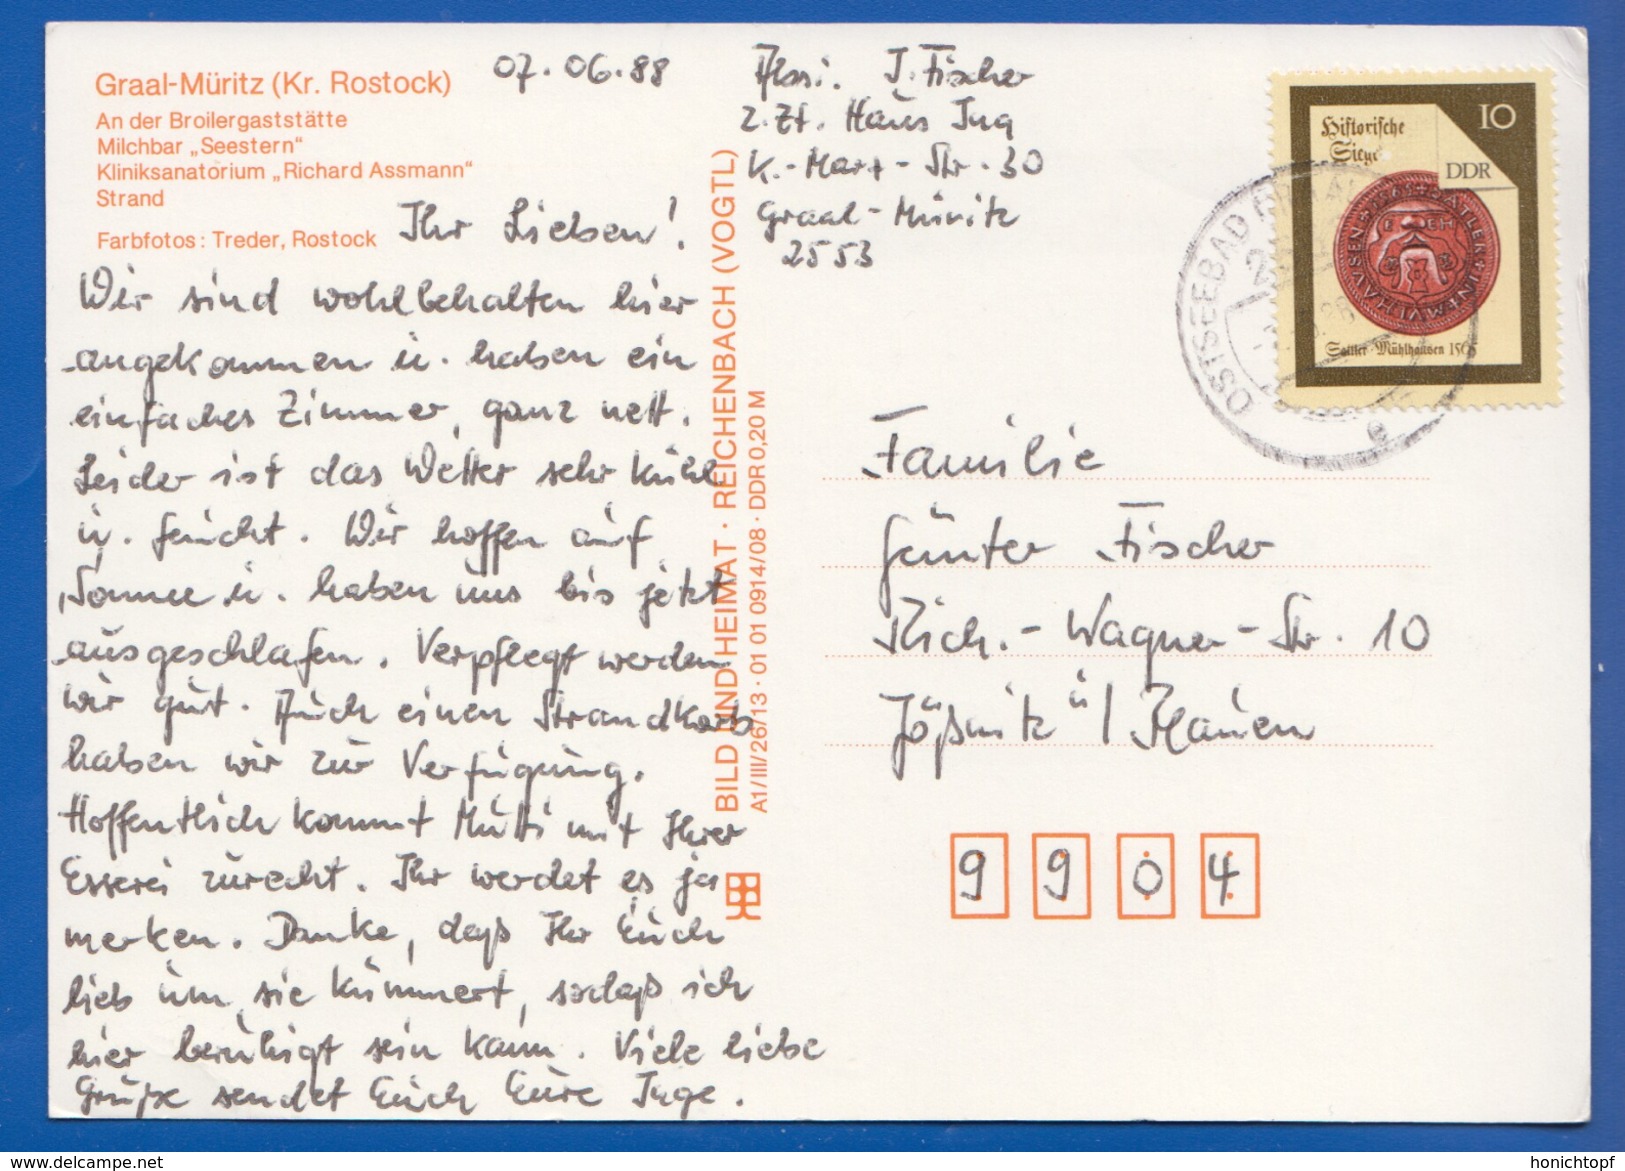 Graal-Müritz (Kr. Rostock)
An der Broilergaststätte
Milchbar „Seestern“
Kliniksanatorium „Richard Assmann“
Strand
Farbfotos: Treder, Rostock
07.06.88
Ihr Lieben!
Wir sind wohlbehalten hier
angekommen u. haben ein
einfaches Zimmer, ganz nett.
Leider ist das Wetter sehr kühl
u. feucht. Wir hoffen auf
Sonne u. haben uns bis jetzt
ausgeschlafen. Verpflegt werden
wir gut. Auch einen Strandkorb
haben wir zur Verfügung.
Hoffentlich kommt Mutti mit Ihrer
Esserei zurecht. Ihr werdet es ja
merken. Danke, daß Ihr Euch
lieb um sie kümmert, sodaß ich
hier beruhigt sein kann. Viele liebe
Grüße sendet Euch Eure Inge.
BILD UND HEIMAT · REICHENBACH (VOGTL)
A1/III/26/13 · 01 01 0914/08 · DDR 0,20 M
J. Fischer
z. Zt. Haus Inq
K.-Marx-Str. 30
Graal-Müritz
2553
Historische
Siegel
10
DDR
Sattler · Mühlhausen 1565
OSTSEEBAD
e
Familie
Günter Fischer
Rich.-Wagner-Str. 10
Jößnitz ü/Plauen
9904
honichtopf
www.delcampe.net